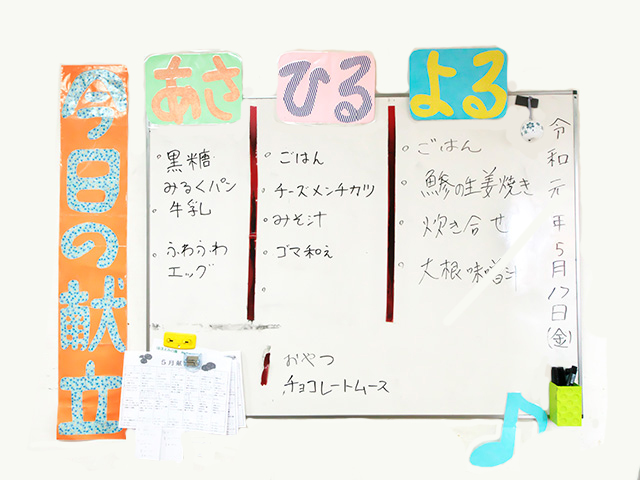 今日の献立
あさ
・黒糖
みるくパン
・牛乳
・ふわふわ
エッグ
ひる
・ごはん
・チーズメンチカツ
・みそ汁
・ゴマ和え
・
よる
・ごはん
・鯵の生姜焼き
・炊き合せ
・大根味噌汁
おやつ
チョコレートムース
令和元年5月17日(金)
5月献